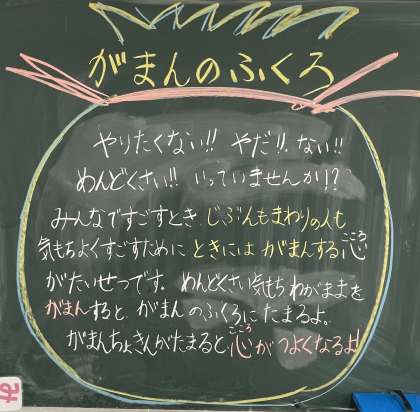 がまんのふくろ
やりたくない!! やだ!! ない!!
めんどくさい!! いっていませんか!?
みんなですごすとき じぶんもまわりの人も
気もちよくすごすために ときには がまんする心
こころ
がたいせつです。めんどくさい気もちわがままを
がまんすると、がまんのふくろにたまるよ。
がまんちょきんがたまると心がつよくなるよ!
こころ